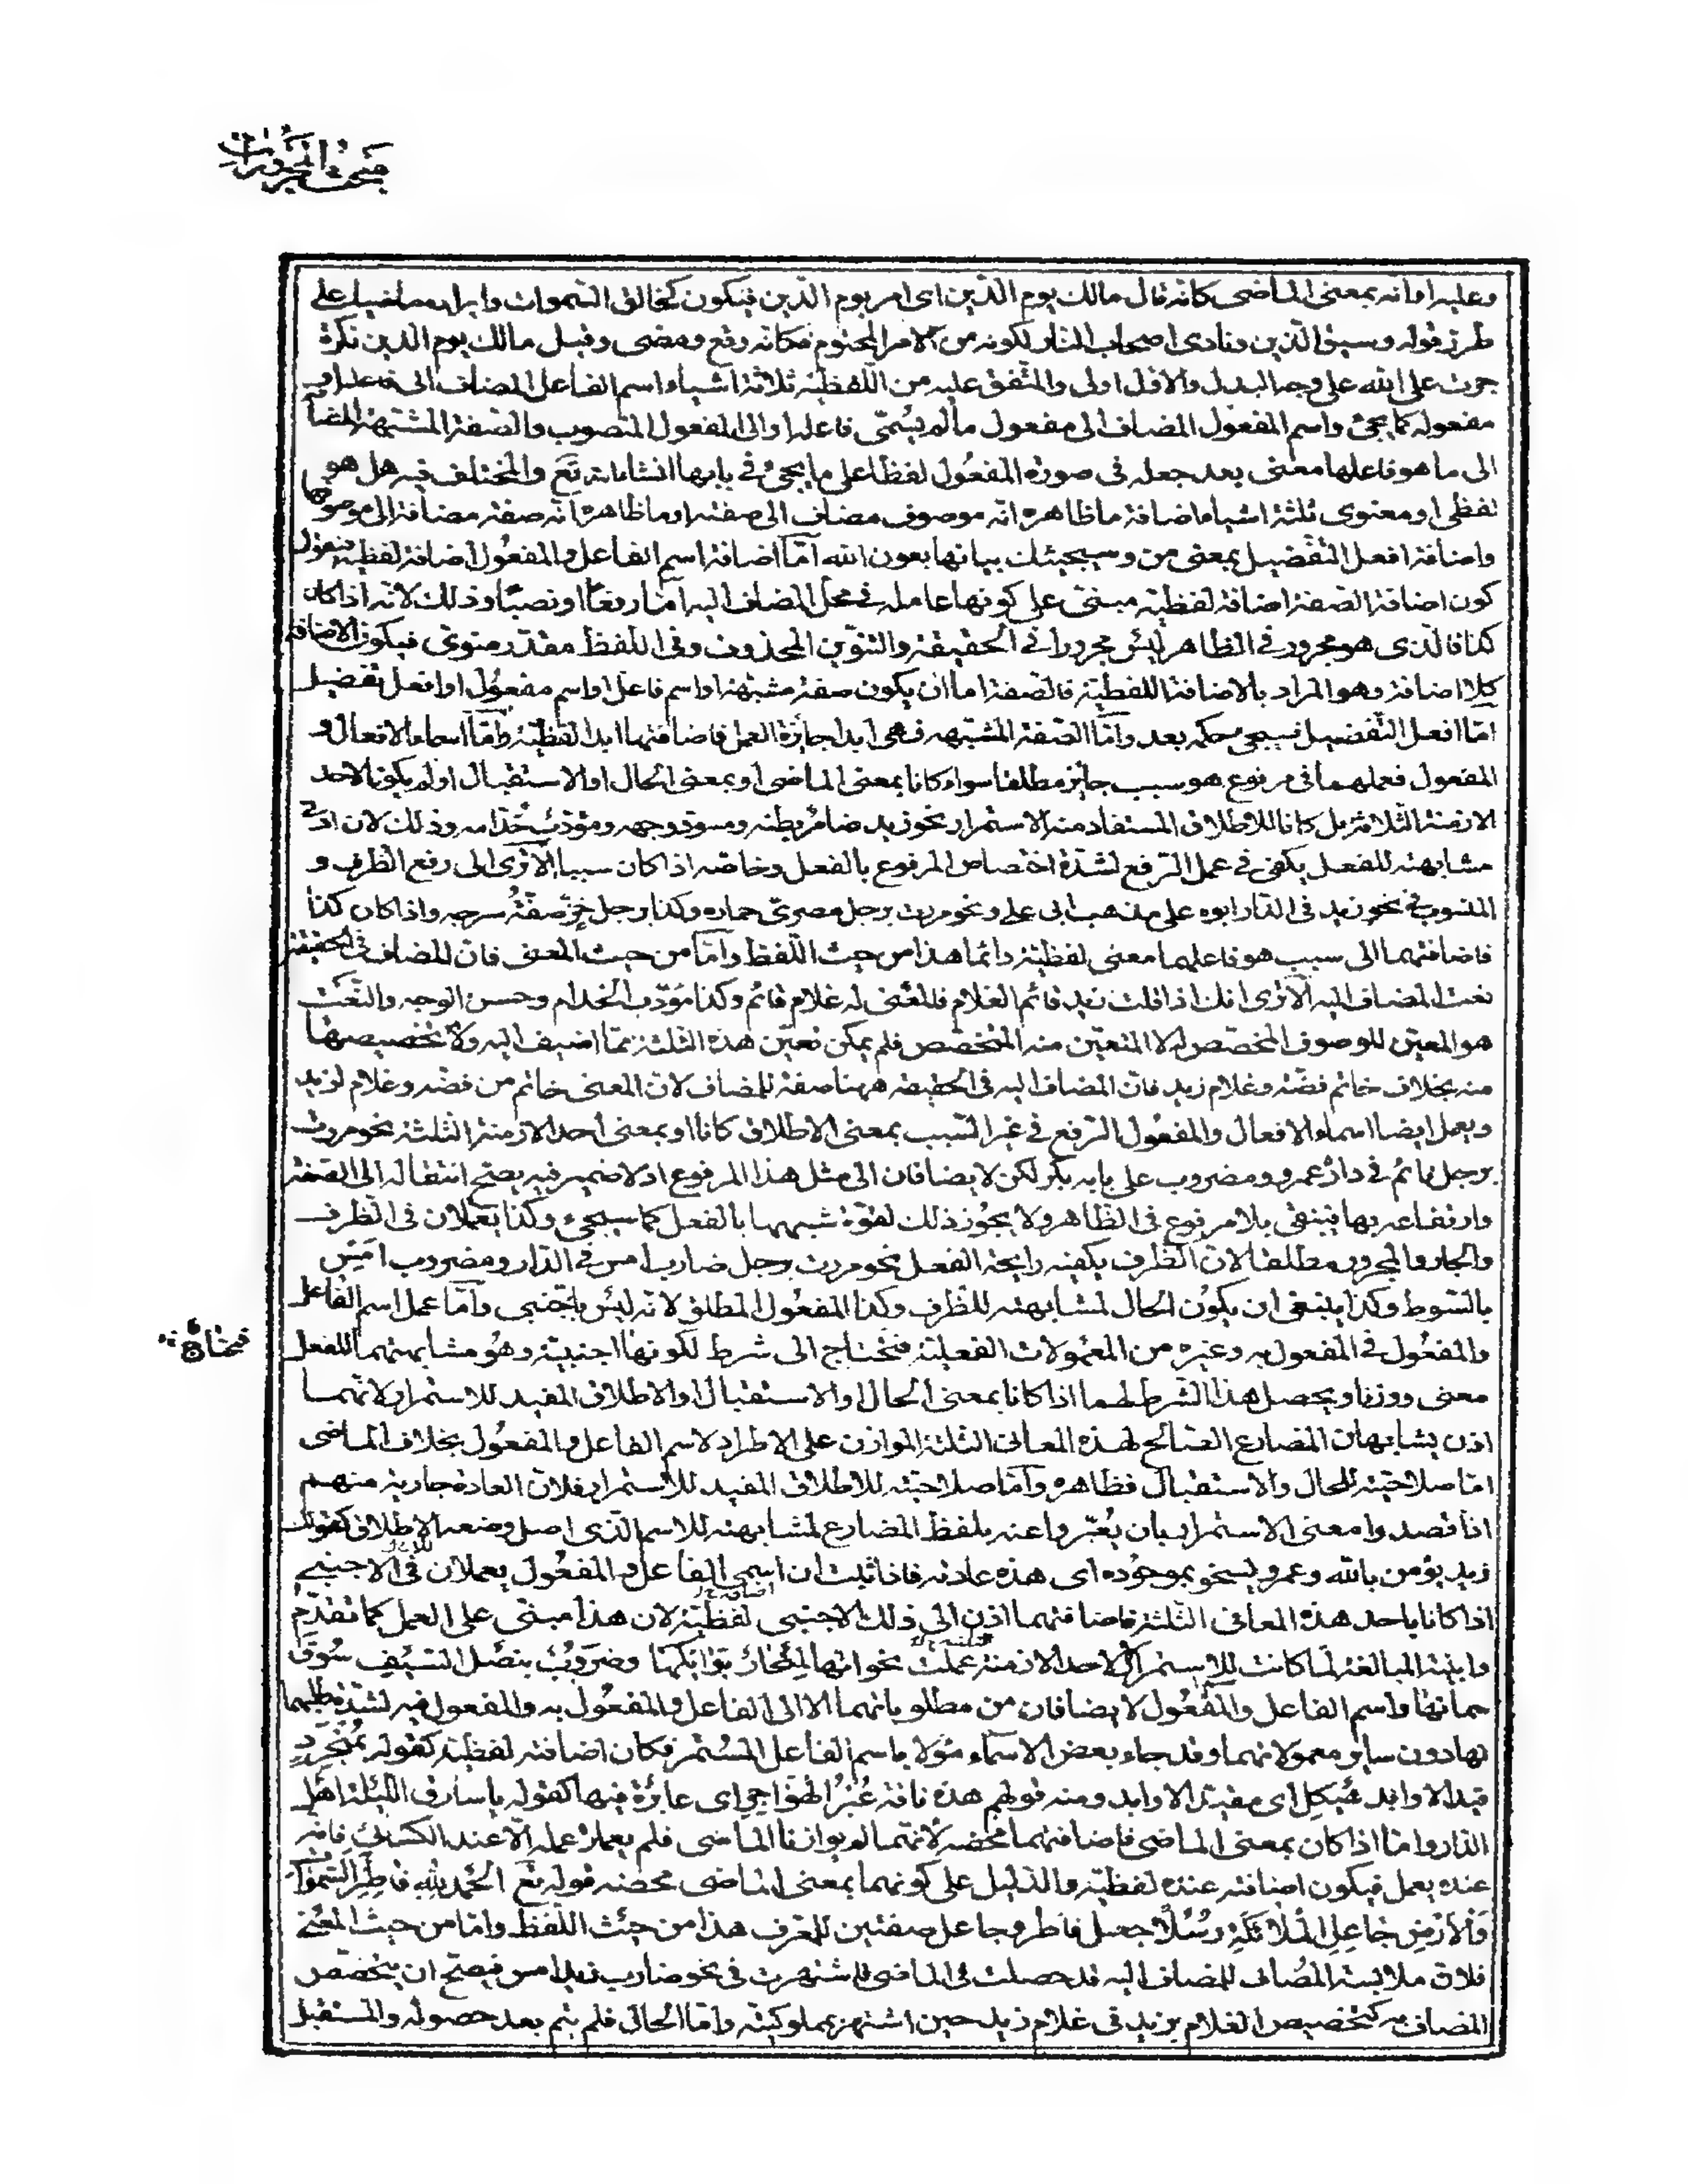 مبحث المجرورات
وعليه او انه بمعنى الماضى كانه قال مالك يوم الدين اى امر يوم الدين فيكون كخالق السموات وايراده على
طرز قوله وسيق الذين ونادى اصحاب النار لكونه من الامر المحتوم فكانه وقع ومضى وقيل مالك يوم الدين نكرة
جرت على الله على وجه البدل والاول اولى والمتّفق عليه من اللّفظيّة ثلاثة اشياء اسم الفاعل المضاف الى فاعله او
مفعوله كما يجئ واسم المفعول المضاف الى مفعول ما لم يسمّى فاعله او الى المفعول المنصوب والصّفة المشبّهة المضا
الى ما هو فاعلها معنى بعد جعله فى صورة المفعول لفظا على ما يجئ فى بابها انشاء الله تع والمختلف فيه هل هو
لفظى او معنوى ثلثة اشياء اضافة ما ظاهره انّه موصوف مضاف الى صفته او ما ظاهره انّه صفة مضافة الى موصوفها
واضافة افعل التّفضيل بمعنى من وسيجيئك بيانها بعون الله امّا اضافة اسم الفاعل والمفعول اضافة لفظية فنقول
كون اضافة الصّفة اضافة لفظيّة مبنىّ على كونها عاملة فى محل المضاف اليه امّا رفعًا او نصبًا وذلك لانّه اذا كان
كذا فالّذى هو مجرور فى الظاهر ليس مجرورا فى الحقيقة والتنوين المحذوف فى اللّفظ مقدّر منوىّ فيكون الاضافة
كلا اضافة وهو المراد بالاضافة اللفظيّة فالصّفة امّا ان يكون صفة مشبّهة او اسم فاعل او اسم مفعول او افعل تفضيل
امّا افعل التّفضيل فسيجئ حكمه بعد وامّا الصّفة المشبّهه فهى ابدا جايزة العمل فاضافتها ابدا لفظيّة وامّا اسماء الافعال و
المفعول فعملهما فى مرفوع هو سبب جايز مطلقا سواء كانا بمعنى الماضى او بمعنى الحال او الاستقبال او لم يكونا لاحد
الازمنة الثّلاثة بل كانا للاطلاق المستفاد منه الاستمرار نحو زيد ضامر بطنه ومسود وجهه ومؤدّب خدّامه وذلك لان ادنى
مشابهته للفعل يكفى فى عمل الرّفع لشدّة اختصاص المرفوع بالفعل وخاصّه اذا كان سببا الا ترى الى رفع الظرف و
المنسوب فى نحو زيد فى الدّار ابوه على مذهب ابى على ونحو مررت برجل مصرىّ حماره وكذا برجل خزّ صفّة سرجه واذا كان كذا
فاضافتهما الى سبب هو فاعلهما معنى لفظيّة دائما هذا من حيث اللّفظ وامّا من حيث المعنى فانّ المضاف فى الحقيقة
نعت المضاف اليه الا ترى انك اذا قلت زيد قائم الغلام فالمعنى له غلام قائم وكذا مؤدّب الخدام وحسن الوجه والنّعت
هو المعيّن للموصوف المخصّص له لا المتعيّن منه المتخصّص فلم يمكن تعيّن هذه الثلثة ممّا اضيف اليه ولا تخصيصها
منه بخلاف خاتم فضّة وغلام زيد فانّ المضاف اليه فى الحقيقة ههنا صفة للمضاف لانّ المعنى خاتم من فضّه وغلام لزيد
ويعمل ايضا اسماء الافعال والمفعول الرّفع فى غير السّبب بمعنى الاطلاق كانا او بمعنى احد الازمنة الثلثة نحو مررت
برجل نائم فى داره عمرو ومضروب على بابه بكر لكن لا يضافان الى مثل هذا المرفوع اذ لا ضمير فيه يصحّ انتقاله الى الصّفة
وارتفاعه بها فيبقى بلا مرفوع فى الظّاهر ولا يجوز ذلك لقوّة شبهها بالفعل كما سيجئ وكذا يعملان فى الظرف
والجار والمجرور مطلقا لانّ الظّرف يكفيه رايحة الفعل نحو مررت برجل ضارب امس فى الدّار ومضروب امس
بالسّوط وكذا ينبغى ان يكون الحال لمشابهته للظّرف وكذا المفعول المطلق لانه ليس باجنبى وامّا عمل اسم الفاعل
والمفعول فى المفعول به وغيره من المعمولات الفعليّة فتحتاج الى شرط لكونها اجنبيّة وهو مشابهتهما للفعل
معنى ووزنا ويحصل هذا الشّرط لهما اذا كانا بمعنى الحال او الاستقبال او الاطلاق المفيد للاستمرار لانّهما
اذن يشابهان المضارع الصّالح لهذه المعانى الثلثة الموازن على الاطراد لاسم الفاعل والمفعول بخلاف الماضى
امّا صلاحيّته للحال والاستقبال فظاهرة وامّا صلاحيّته للاطلاق المفيد للاستمرار فلانّ العادة جارية منهم
اذا قصدوا معنى الاستمرار بان يعبّروا عنه بلفظ المضارع لمشابهته للاسم الّذى اصل وضعه الاطلاق كقولك
زيد يؤمن بالله وعمرو يسخو بموجوده اى هذه عادته فاذا ثبت ان اسمى الفاعل والمفعول يعملان فى الاجنبى
اذا كانا باحد هذه المعانى الثّلثة فاضافتهما اذن الى ذلك الاجنبى لفظيّة لان هذا مبنىّ على العمل كما تقدّم
وابنية المبالغة لمّا كانت للاستمرار لا لاحد الازمنة عملت نحو انّها لمنحار بوائكها وضروب بنصل السّيف سوق
سمانها واسم الفاعل والمفعول لا يضافان من مطلوباتهما الا الى الفاعل والمفعول به والمفعول فيه لشدّة طلبهما
لها دون ساير معمولاتهما وقد جاء بعض الاسماء مؤلا باسم الفاعل المستمر فكان اضافته لفظية كقوله بمنجرد
قيد الاوابد هيكل اى مقيّد الاوابد ومنه قولهم هذه ناقة عبر الهواجر اى عابرة فيها كقوله يا سارق الليلة اهل
الدّار وامّا اذا كان بمعنى الماضى فاضافتهما محضه لانّهما لم يوازنا الماضى فلم يعملا عمله الّا عند الكسائى فانه
عنده يعمل فيكون اضافته عنده لفظيّة والدّليل على كونهما بمعنى الماضى محضه قوله تع الحمد لله فاطر السّموات
والارض جاعل الملائكة رسلا جعل فاطر وجاعل صفتين للمعرف هذا من حيث اللّفظ وامّا من حيث المعنى
فلانّ ملابسة المضاف للمضاف اليه قد حصلت فى الماضى واشتهرت فى نحو ضارب زيد امس فيصحّ ان يتخصّص
المضاف به كتخصيص الغلام بزيد فى غلام زيد حين اشتهر بمملوكيّته وامّا الحال فلم يتم بعد حصوله والمستقبل